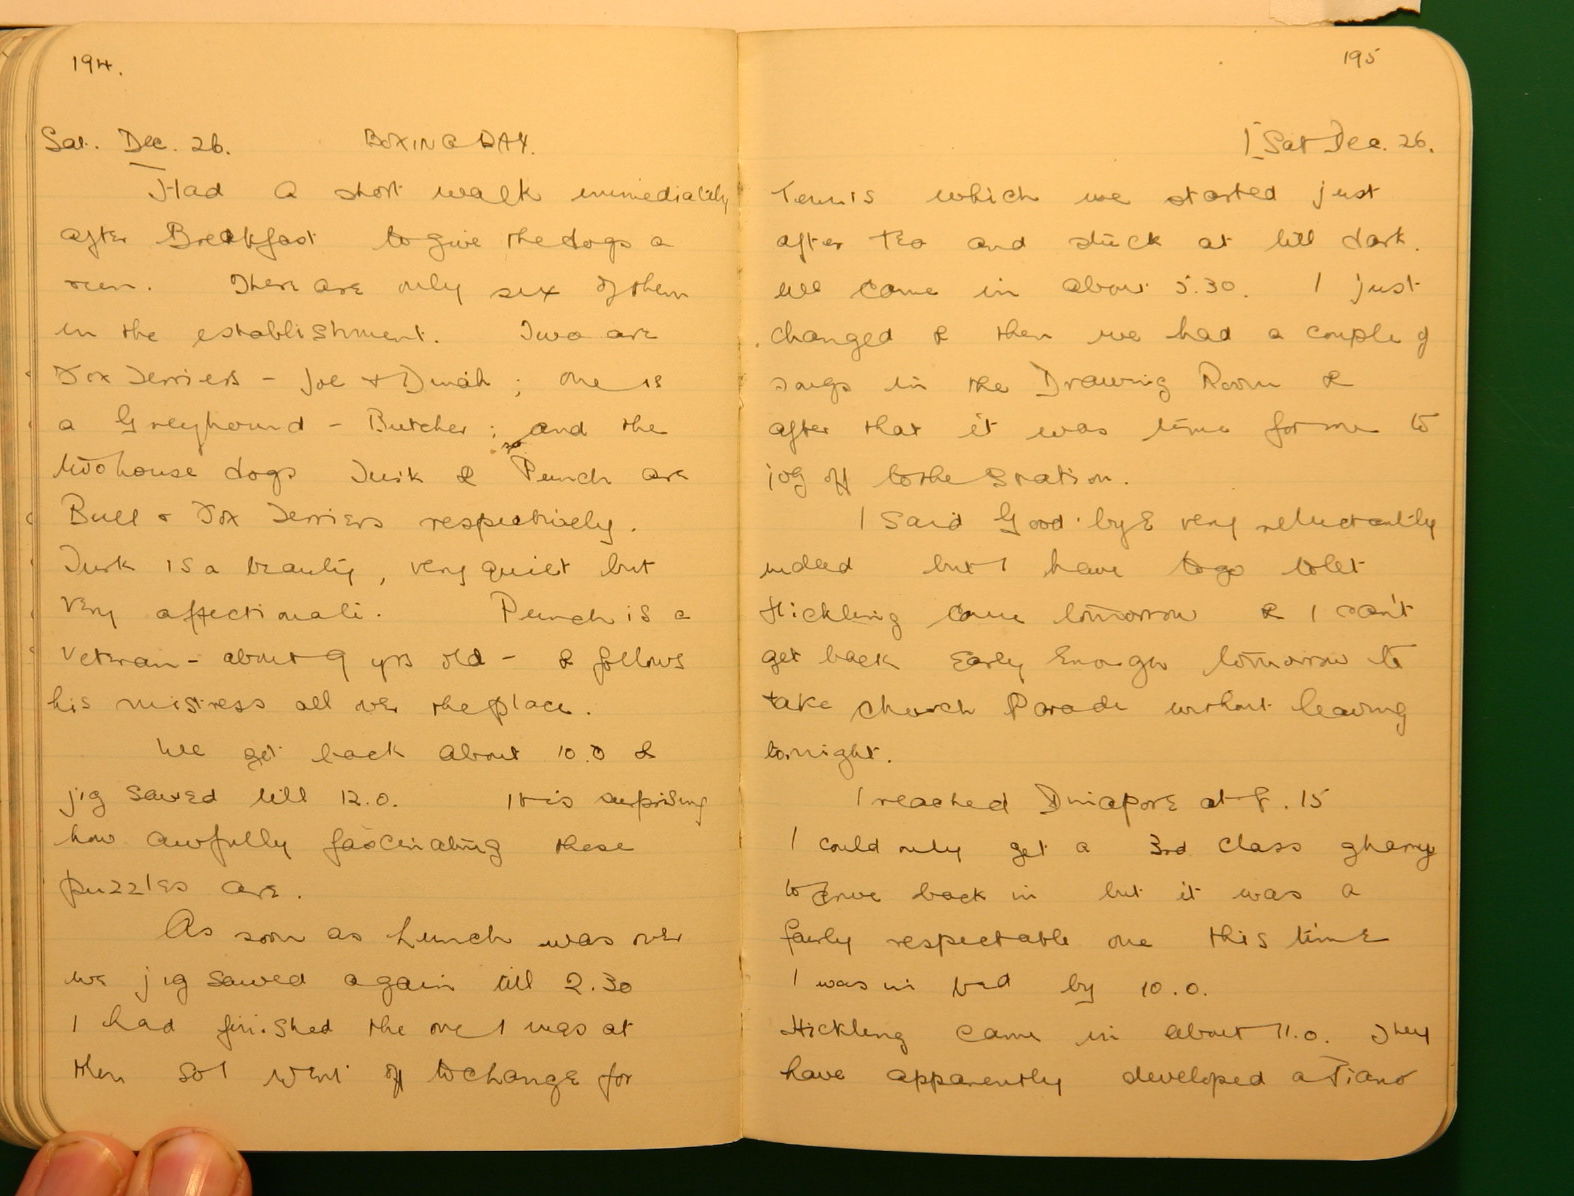 194.
Sat. Dec. 26. BOXING DAY.
Had a short walk immediately
after Breakfast to give the dogs a
run. There are only six of them
in the establishment. Two are
Fox Terriers - Joe & Dinah ; one is
a Greyhound - Butcher ; and the
two house dogs Turk & Punch are
Bull & Fox Terriers respectively.
Turk is a beauty, very quiet but
very affectionate. Punch is a
veteran - about 9 yrs old - & follows
his mistress all over the place.
We got back about 10.0 &
jig sawed till 12.0. It is surprising
how awfully fascinating these
puzzles are.
As soon as Lunch was over
we jig sawed again till 2.30
I had finished the one I was at
then so I went off to change for
195
Sat Dec. 26.
Tennis which we started just
after Tea and stuck at till dark.
We came in about 5.30. I just
changed & then we had a couple of
songs in the Drawing Room &
after that it was time for me to
jog off to the Station.
I said Good-bye very reluctantly
indeed but I have to go to let
Hickling come tomorrow & I can't
get back early enough tomorrow to
take Church Parade without leaving
tonight.
I reached Dinapore at 8.15
I could only get a 3rd class gharry
to drive back in but it was a
fairly respectable one this time
I was in bed by 10.0.
Hickling came in about 11.0. They
have apparently developed a Piano